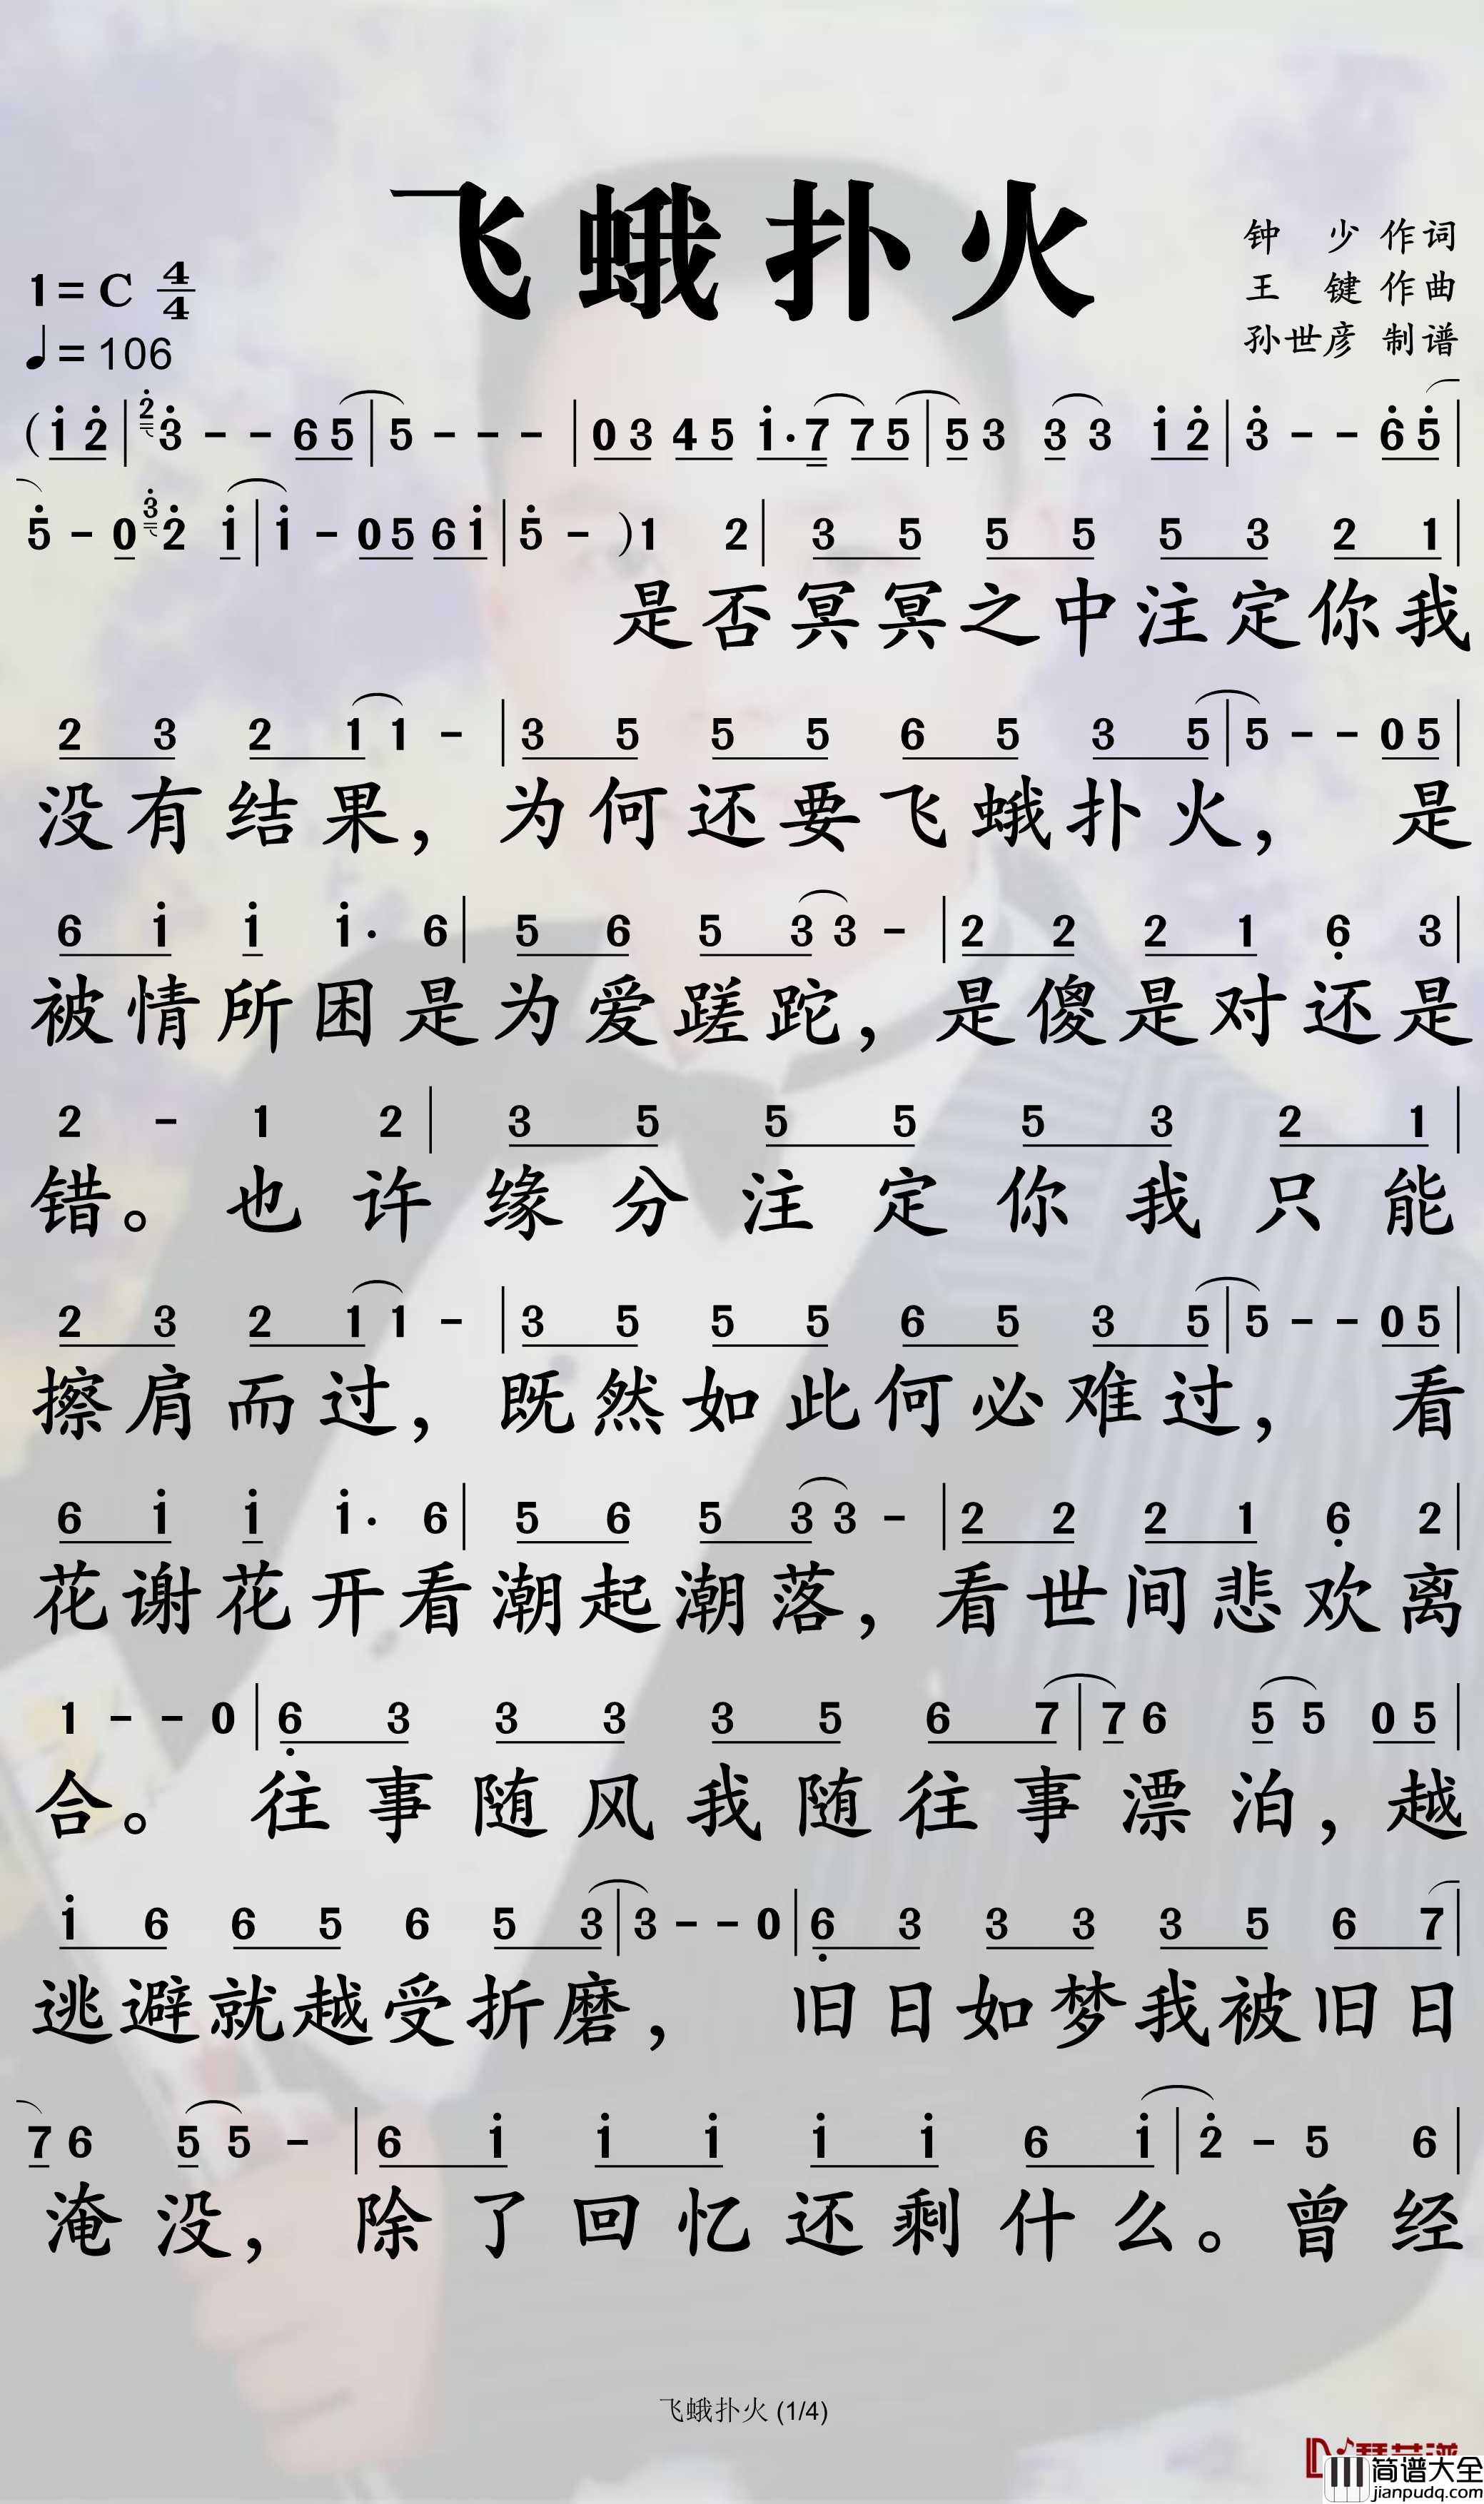 飞蛾扑火
钟 少 作词
王 键 作曲
孙世彦 制谱
1=C 4/4
♩=106
(i̇ 2̇ | 2̇ 3̇ - - 6 5 | 5 - - - | 0 3 4 5 i̇· 7 7 5 | 5 3 3 3 i̇ 2̇ | 3̇ - - 6̇ 5̇ |
5̇ - 0 3̇ 2̇ i̇ | i̇ - 0 5 6 i̇ | 5̇ - ) 1 2 | 3 5 5 5 5 3 2 1 |
是否冥冥之中注定你我
2 3 2 1 1 - | 3 5 5 5 6 5 3 5 | 5 - - 0 5 |
没有结果，为何还要飞蛾扑火， 是
6 i̇ i̇ i̇· 6 | 5 6 5 3 3 - | 2 2 2 1 6̣ 3 |
被情所困是为爱蹉跎，是傻是对还是
2 - 1 2 | 3 5 5 5 5 3 2 1 |
错。也许缘分注定你我只能
2 3 2 1 1 - | 3 5 5 5 6 5 3 5 | 5 - - 0 5 |
擦肩而过，既然如此何必难过， 看
6 i̇ i̇ i̇· 6 | 5 6 5 3 3 - | 2 2 2 1 6̣ 2 |
花谢花开看潮起潮落，看世间悲欢离
1 - - 0 | 6̣ 3 3 3 3 5 6 7 | 7 6 5 5 0 5 |
合。 往事随风我随往事漂泊，越
i̇ 6 6 5 6 5 3 | 3 - - 0 | 6̣ 3 3 3 3 5 6 7 |
逃避就越受折磨， 旧日如梦我被旧日
7 6 5 5 - | 6 i̇ i̇ i̇ i̇ i̇ 6 i̇ | 2̇ - 5 6 |
淹没，除了回忆还剩什么。曾经
飞蛾扑火 (1/4)
简谱大全
jianpudq.com